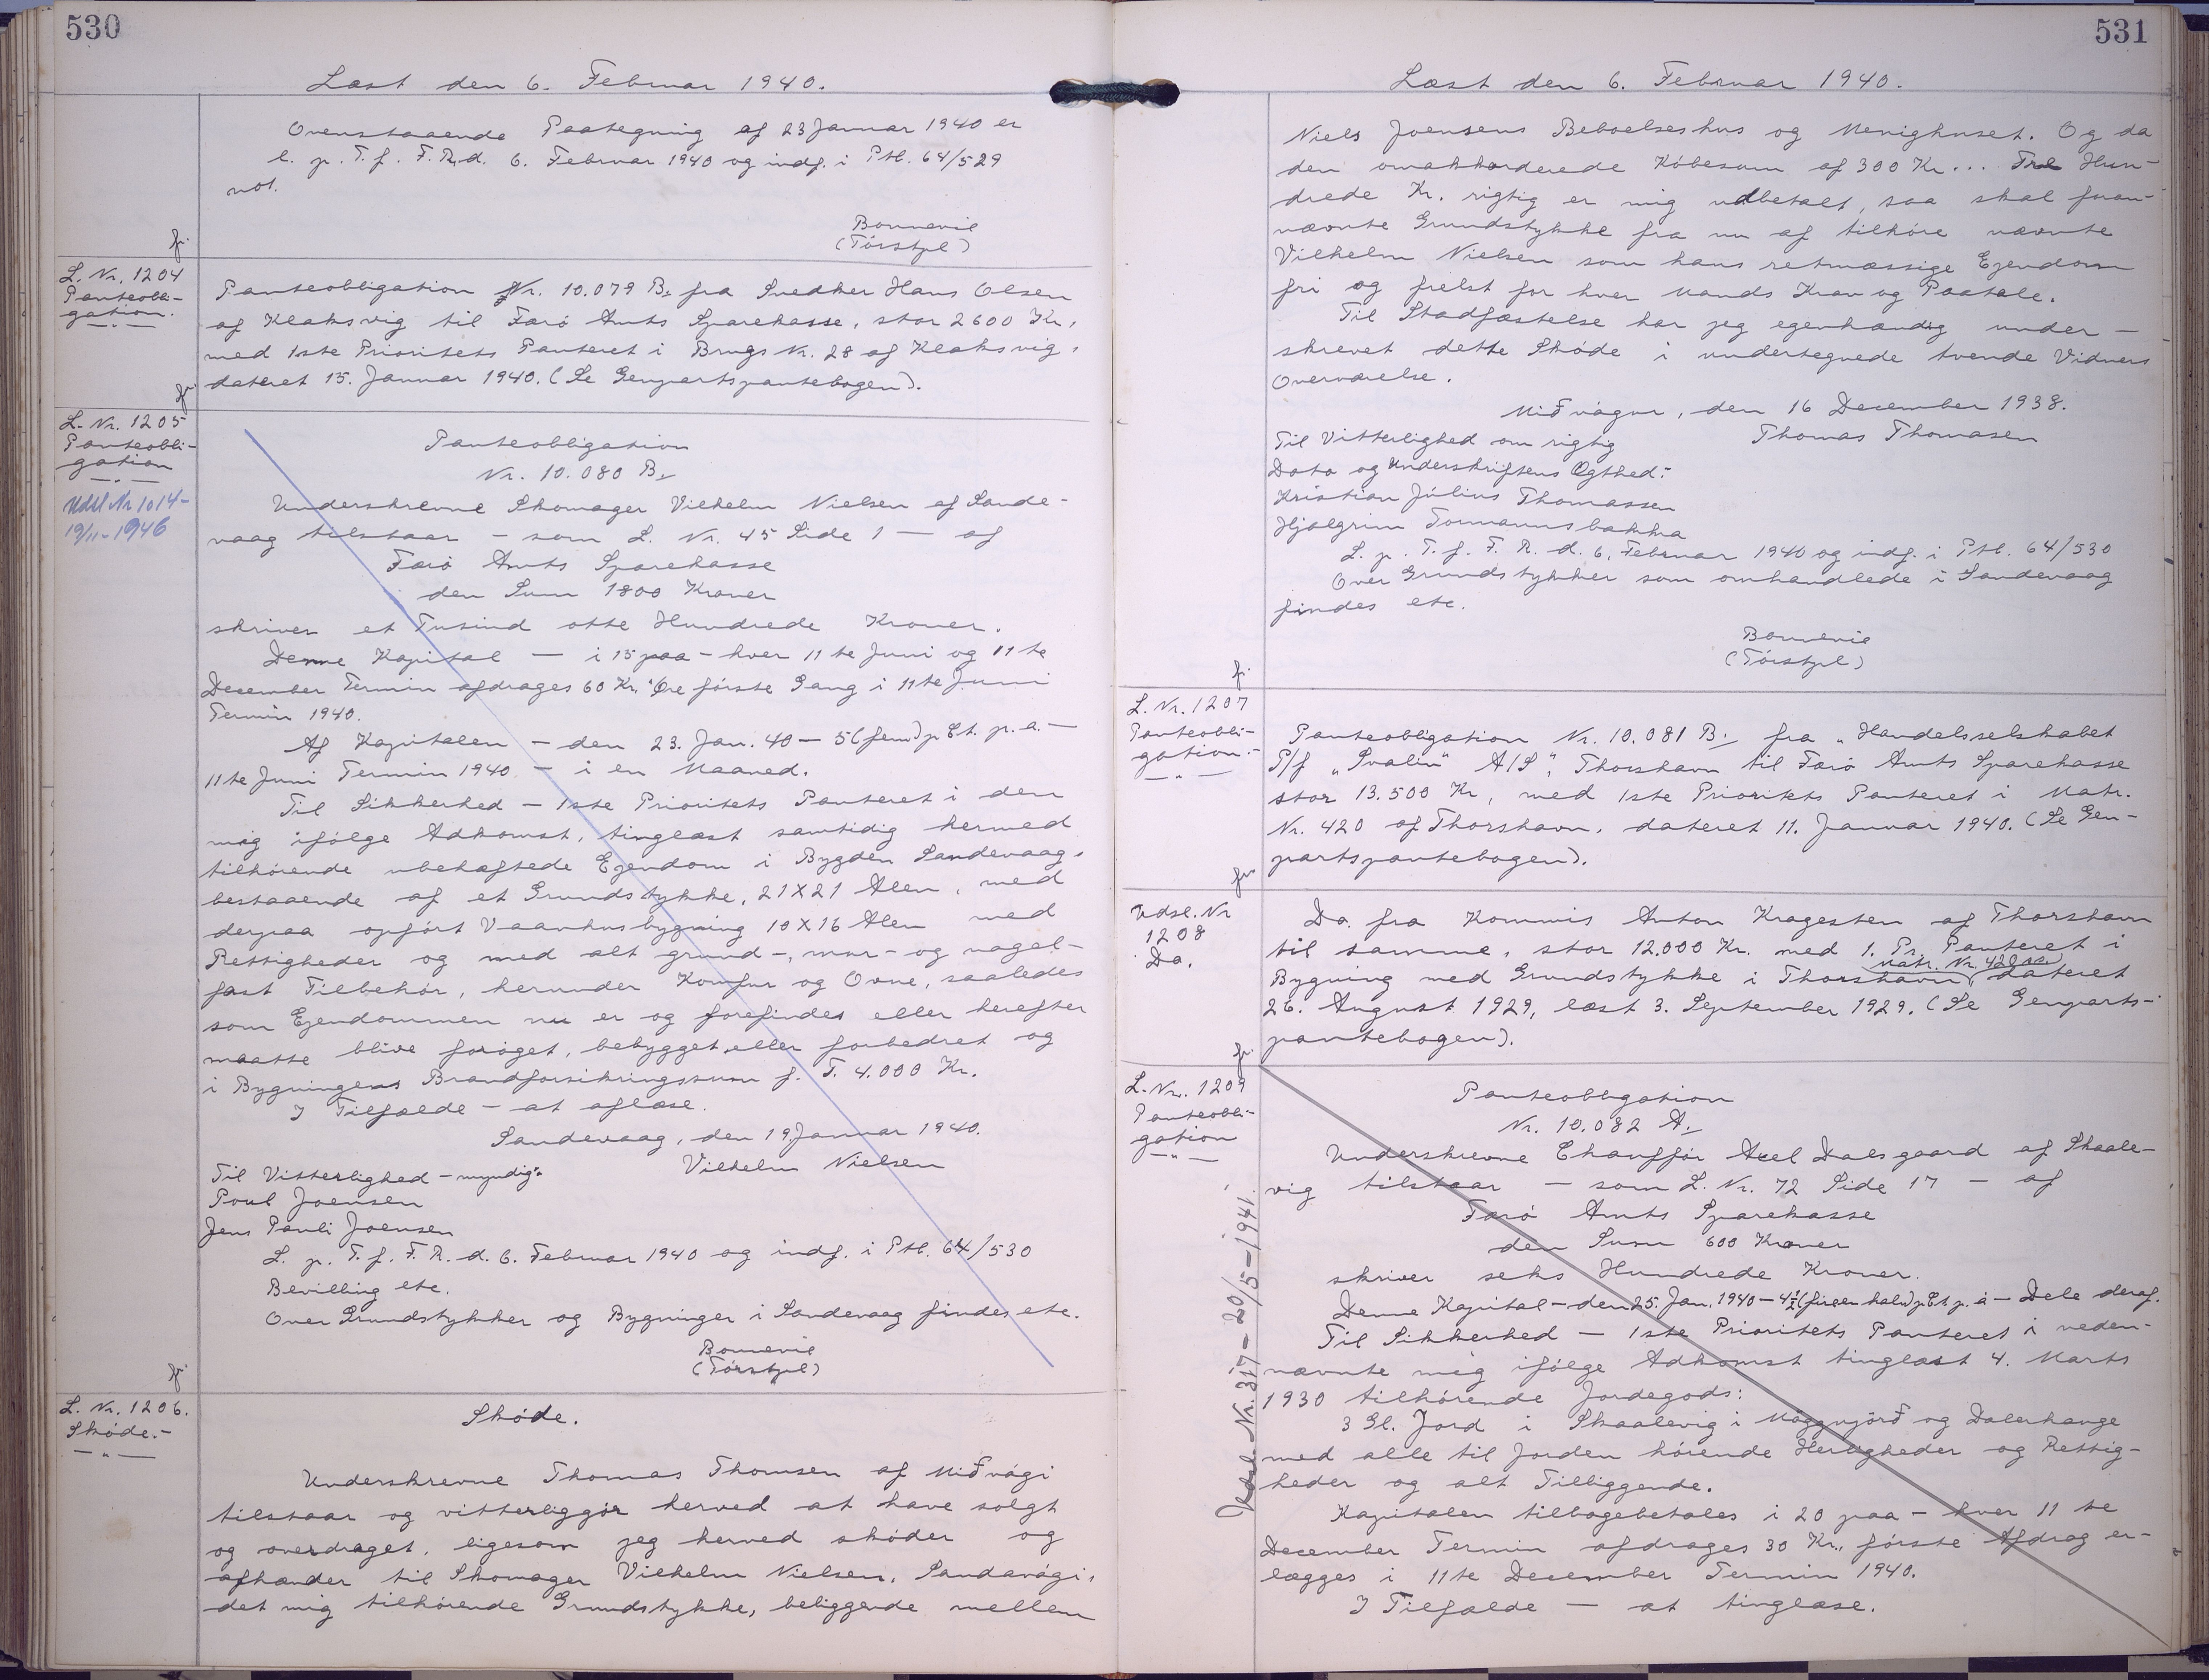 530
Læst den 6. Februar 1940.
Ovenstaaende Paategning af 23 Januar 1940 er
l. p. T. f. F. R. d. 6. Februar 1940 og indf. i Ptl. 64/529
not.
Bonnevie
(Tórstpl)
fr.
L. Nr. 1204
Panteobli-
gation.
Panteobligation Nr. 10.079 B. fra Snedker Hans Olsen
af Klaksvig til Færø Amts Sparekasse, stor 2600 Kr,
med 1ste Prioritets Panteret i Brugs Nr. 28 af Klaksvig,
dateret 15. Januar 1940. (Se Genpartspantebogen).
fr.
L. Nr. 1205
Panteobli-
gation
Udsl Nr 1014-
19/11-1946
Panteobligation
Nr. 10.080 B.
Underskrevne Skomager Vilhelm Nielsen af Sande-
vaag tilstaar - som L. Nr. 45 Side 1 — af
Færö Amts Sparekasse
den Sum 1800 Kroner
skriver et Tusind otte Hundrede Kroner.
Denne Kapital — i 15 paa - hver 11te Juni og 11te
December Termin afdrages 60 Kr. " Øre förste Gang i 11te Juni
Termin 1940.
Af Kapitalen - den 23. Jan. 40 — 5 (fem) p Ct. p. a. —
11te Juni Termin 1940 - i en Maaned.
Til Sikkerhed - 1ste Prioritets Panteret i den
mig ifölge Adkomst, tinglæst samtidig hermed
tilhörende ubehæftede Ejendom i Bygden Sandevaag,
bestaaende af et Grundstykke, 21 X 21 Alen, med
derpaa opfört Vaanhusbygning 10 X 16 Alen med
Rettigheder og med alt grund-, mur- og nagel-
fast Tilbehör, herunder Komfur og Ovne, saaledes
som Ejendommen nu er og forefindes eller herefter
maatte blive foröget, bebygget eller forbedret og
i Bygningens Brandforsikringssum f. T. 4.000 Kr.
I Tilfælde - at aflæse.
Sandevaag, den 19. Januar 1940.
Til Vitterlighed - myndigh. Vilhelm Nielsen
Poul Joensen
Jens Pauli Joensen
L. p. T. f. F. R. d. 6. Februar 1940 og indf. i Ptl. 64/530
Bevilling etc.
Over Grundstykker og Bygninger i Sandevaag findes etc.
Bonnevie
(Tórstpl)
fr.
L. Nr. 1206.
Sköde.-
Sköde.
Underskrevne Thomas Thomsen af Miðvági
tilstaar og vitterliggör herved at have solgt
og overdraget, ligesom jeg herved sköder og
afhænder til Skomager Vilhelm Nielsen, Sandavági,
det mig tilhörende Grundstykke, beliggende mellem
531
Læst den 6. Februar 1940.
Niels Joensens Beboelseshus og Menighuset. Og da
den omakkorderede Köbesum af 300 Kr... Tre Hun-
drede Kr. rigtig er mig udbetalt, saa skal foran-
nævnte Grundstykke fra nu af tilhöre nævnte
Vilhelm Nielsen som hans retmæssige Ejendom
fri og frelst for hver Mands Krav og Paatale.
Til Stadfæstelse har jeg egenhændig under-
skrevet dette Sköde i undertegnede tvende Vidners
Overværelse.
Miðvágur, den 16 December 1938.
Til Vitterlighed om rigtig Thomas Thomasen
Dato og Underskriftens Ægthed:
Kristian Július Thomassen
Hjalgrim Tormannsbakka
L. p. T. f. F. R. d. 6. Februar 1940 og indf. i Ptl. 64/530
Over Grundstykker som omhandlede i Sandevaag
findes etc.
Bonnevie
(Tórstpl)
fr.
L. Nr. 1207
Panteobli-
gation.-
Panteobligation Nr. 10.081 B. fra "Handelsselskabet
P/f "Svalin" A/S", Thorshavn til Færö Amts Sparekasse
stor 13.500 Kr, med 1ste Prioritets Panteret i Matr.
Nr. 420 af Thorshavn, dateret 11. Januar 1940. (Se Gen-
partspantebogen).
fr.
Udsl. Nr
1208
Do.
Do. fra Kommis Anton Kragesten af Thorshavn
til samme, stor 12.000 Kr. med 1. Pr. Panteret i
Matr. Nr. 420
Bygning med Grundstykke i Thorshavn, dateret
26. August 1929, læst 3. September 1929. (Se Genparts-
pantebogen).
fr.
L. Nr. 1209
Panteobli-
gation
Udsl. Nr. 317 - 20/5 - 1941.
Panteobligation
Nr. 10.082 A.
Underskrevne Chauffør Axel Dalsgaard af Skaale-
vig tilstaar — som L. Nr. 72 Side 17 — af
Færö Amts Sparekasse
den Sum 600 Kroner
skriver seks Hundrede Kroner.
Denne Kapital - den 25. Jan. 1940 - 4½ (fire en halv) p Ct. p. a - Dele deraf.
Til Sikkerhed — 1ste Prioritets Panteret i neden-
nævnte mig ifölge Adkomst tinglæst 4. Marts
1930 tilhörende Jordegods:
3 Gl. Jord i Skaalevig i Möggujörð og Dalerhauge
med alle til Jorden hörende Herligheder og Rettig-
heder og alt Tilliggende.
Kapitalen tilbagebetales i 20 paa - hver 11te
December Termin afdrages 30 Kr., förste Afdrag er-
lægges i 11te December Termin 1940.
I Tilfælde — at tinglæse.